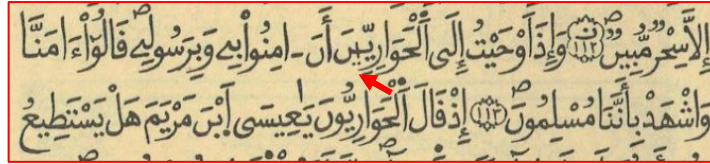 إِلَّا سِحْرٌ مُّبِينٌ ١١٢ وَإِذَ اَوْحَيْتُ إِلَى اَ۬لْحَوَارِيِّـۧنَ أَنَ ـ امِنُواْ بِے وَبِرَسُولِے قَالُوٓاْ ءَامَنَّا
وَاشْهَدْ بِأَنَّنَا مُسْلِمُونَ ١١٣ إِذْ قَالَ اَ۬لْحَوَارِيُّونَ يَٰعِيسَى اَ۪بْنَ مَرْيَمَ هَلْ يَسْتَطِيعُ